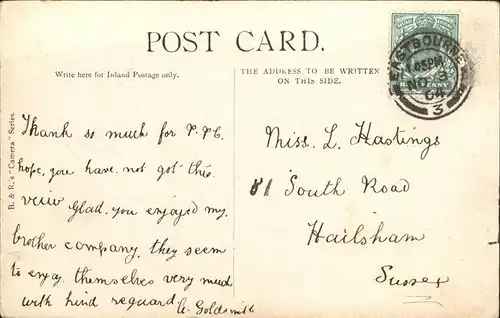 POST CARD.
Write here for Inland Postage only.
THE ADDRESS TO BE WRITTEN
ON THIS SIDE.
EASTBOURNE
NO 3
04
3
B. & R.'s "Camera" Series.
Thank so much for P.P.C.
hope, you have not got this.
view Glad, you enjoyed my.
brother company, they seem
to enjoy. themselves very much
with kind reguard A. Goldsmith
Miss. L. Hastings
81 South Road
Hailsham
Sussex